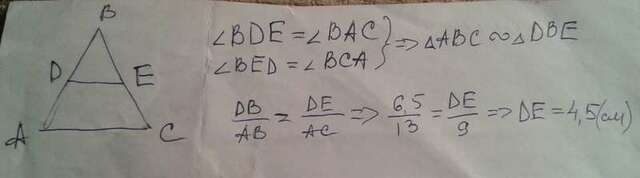 B
D E
A C
∠BDE = ∠BAC
∠BED = ∠BCA } => △ABC ∾ △DBE
DB/AB = DE/AC => 6,5/13 = DE/9 => DE = 4,5(см)